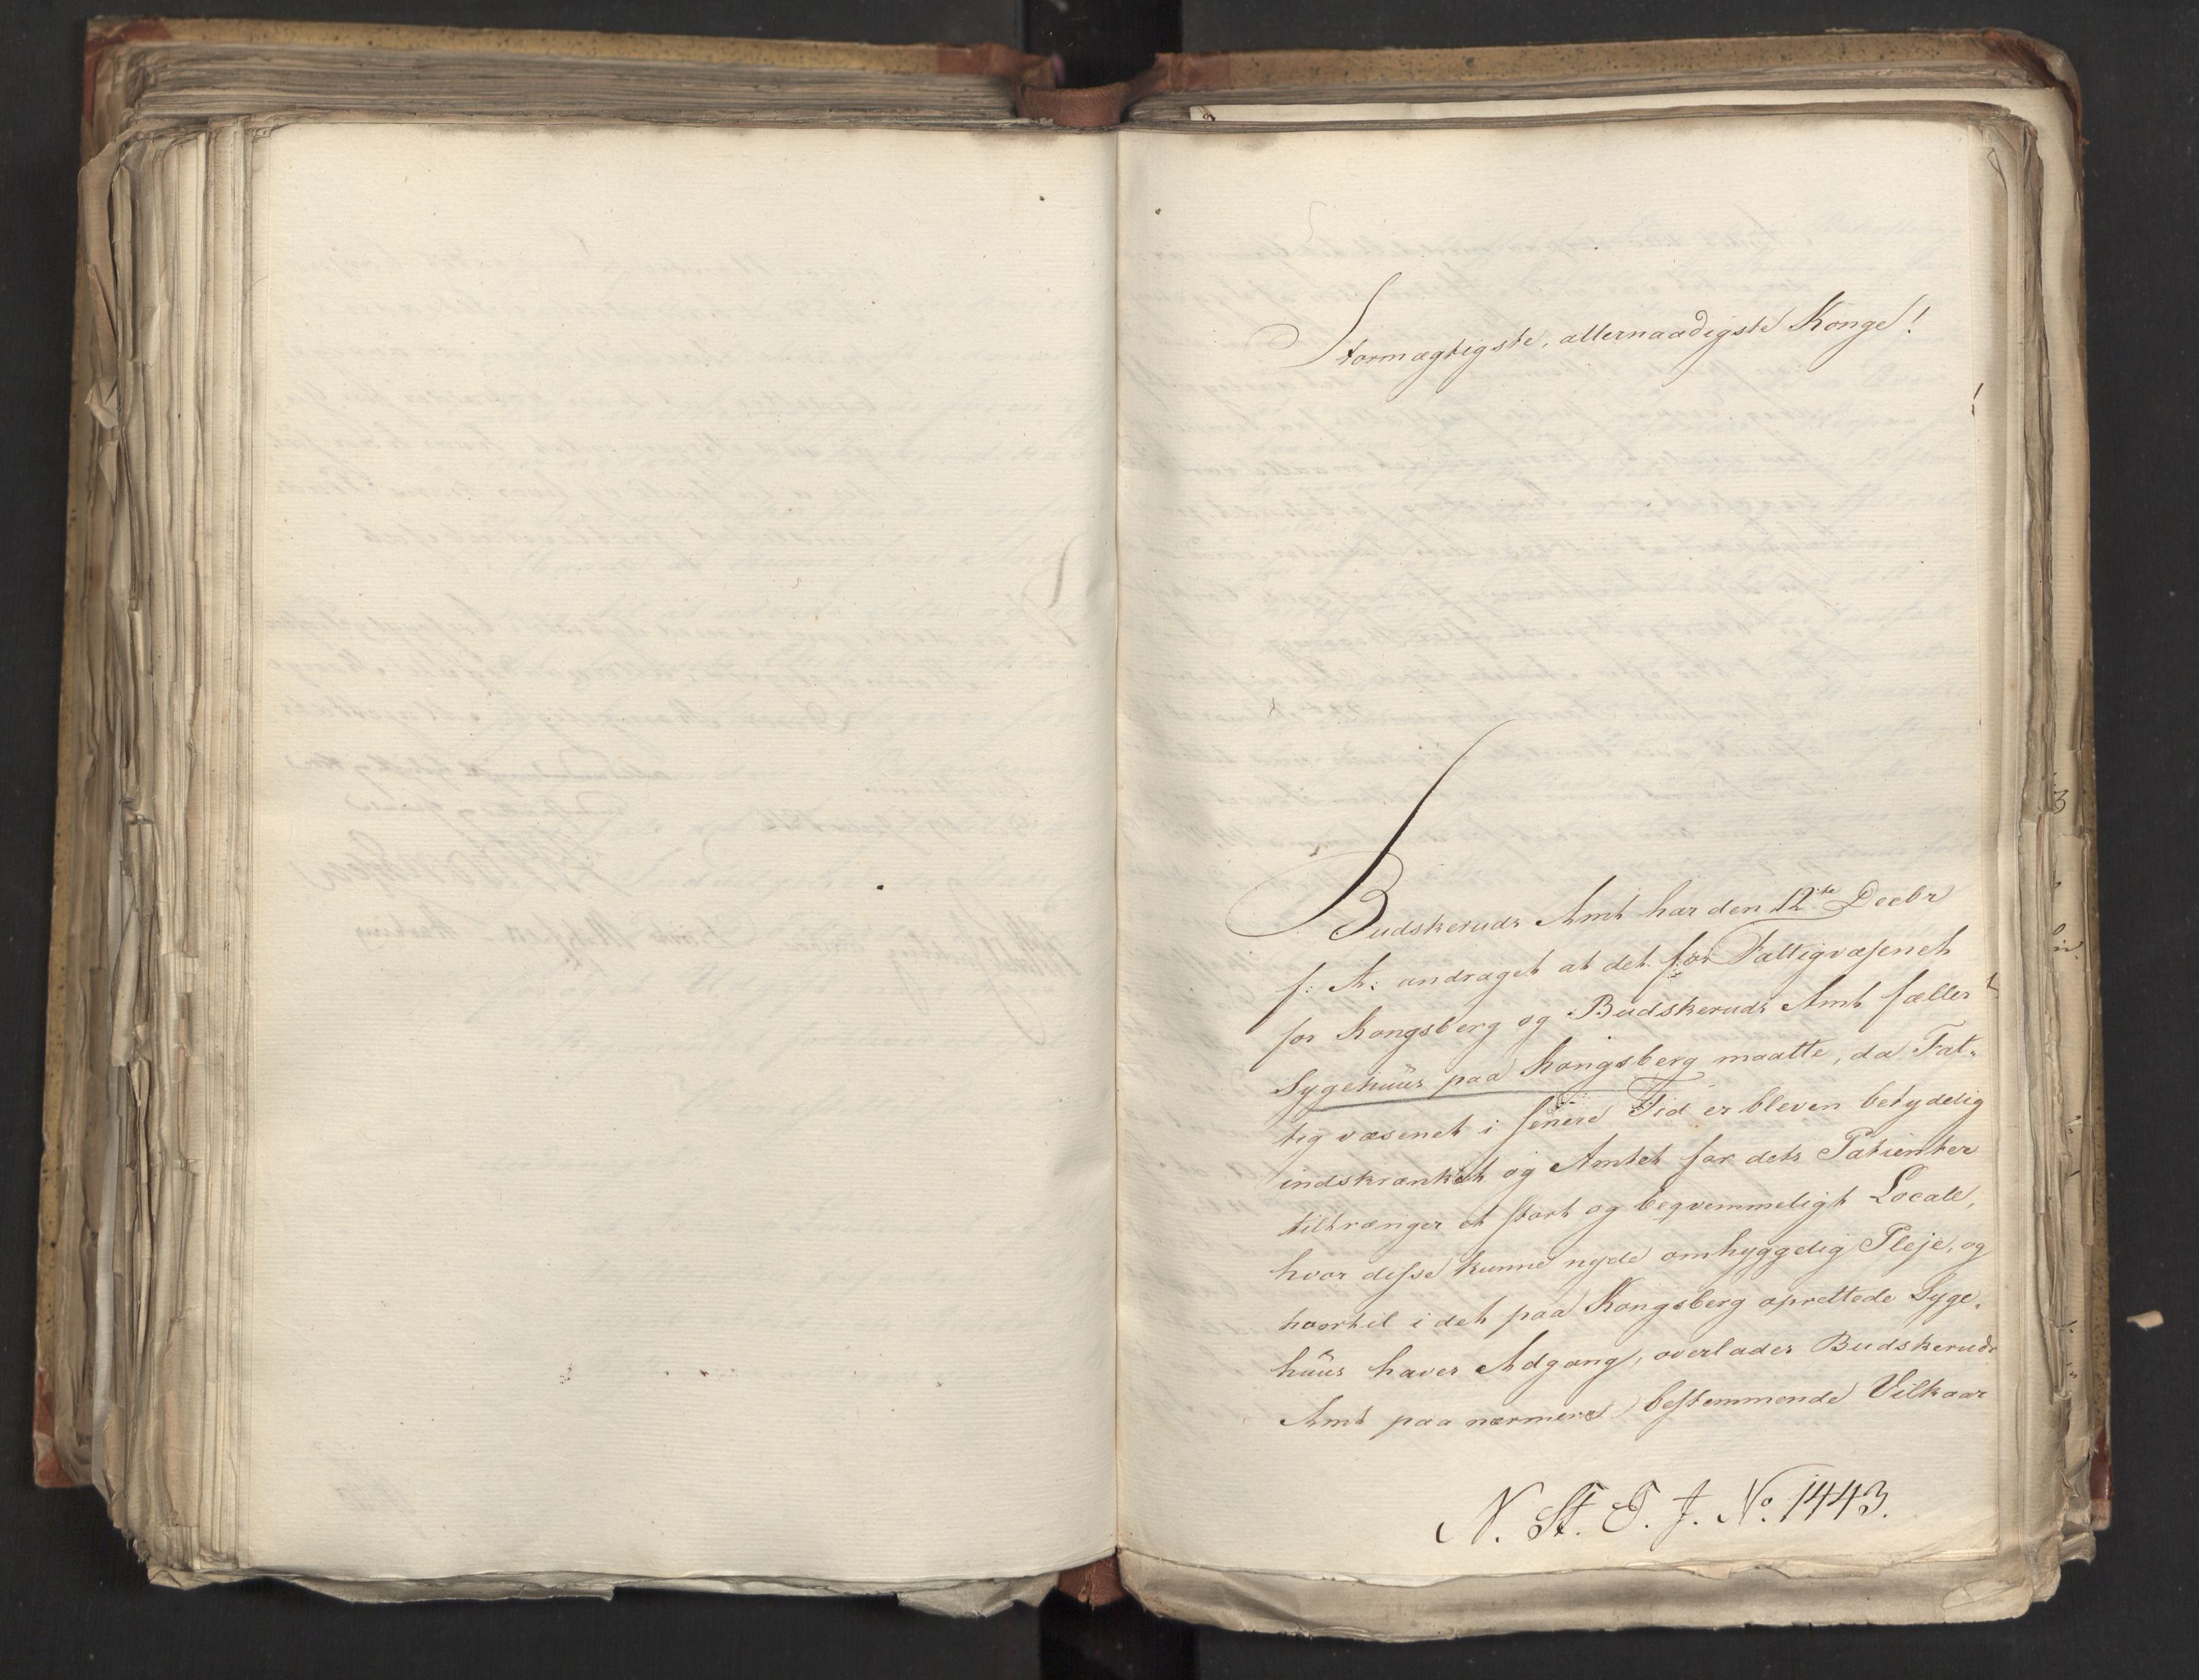 Stormægtigste, allernaadigste Konge!
Budskeruds Amt har den 12te Decbr
f: A: andraget at det for Fattigvæsenet
for Kongsberg og Budskeruds Amt fælles
Sygehuus paa Kongsberg maatte, da Fat-
tigvæsenet i senere Tid er bleven betydelig
indskrænket og Amtet for dets Patienter
tiltrænger et stort og beqvemmeligt Locale,
hvor disse kunne nyde omhyggelig Pleje, og
hvortil i det paa Kongsberg oprettede Syge-
huus haves Adgang, overlades Budskeruds
Amt paa nærmere bestemmende Vilkaar
N. St. E. J. No. 1443.